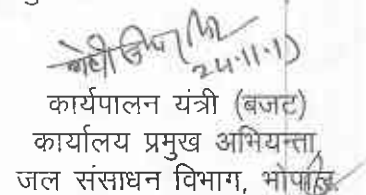 24.11.17
कार्यपालन यंत्री (बजट)
कार्यालय प्रमुख अभियन्ता,
जल संसाधन विभाग, भोपाल